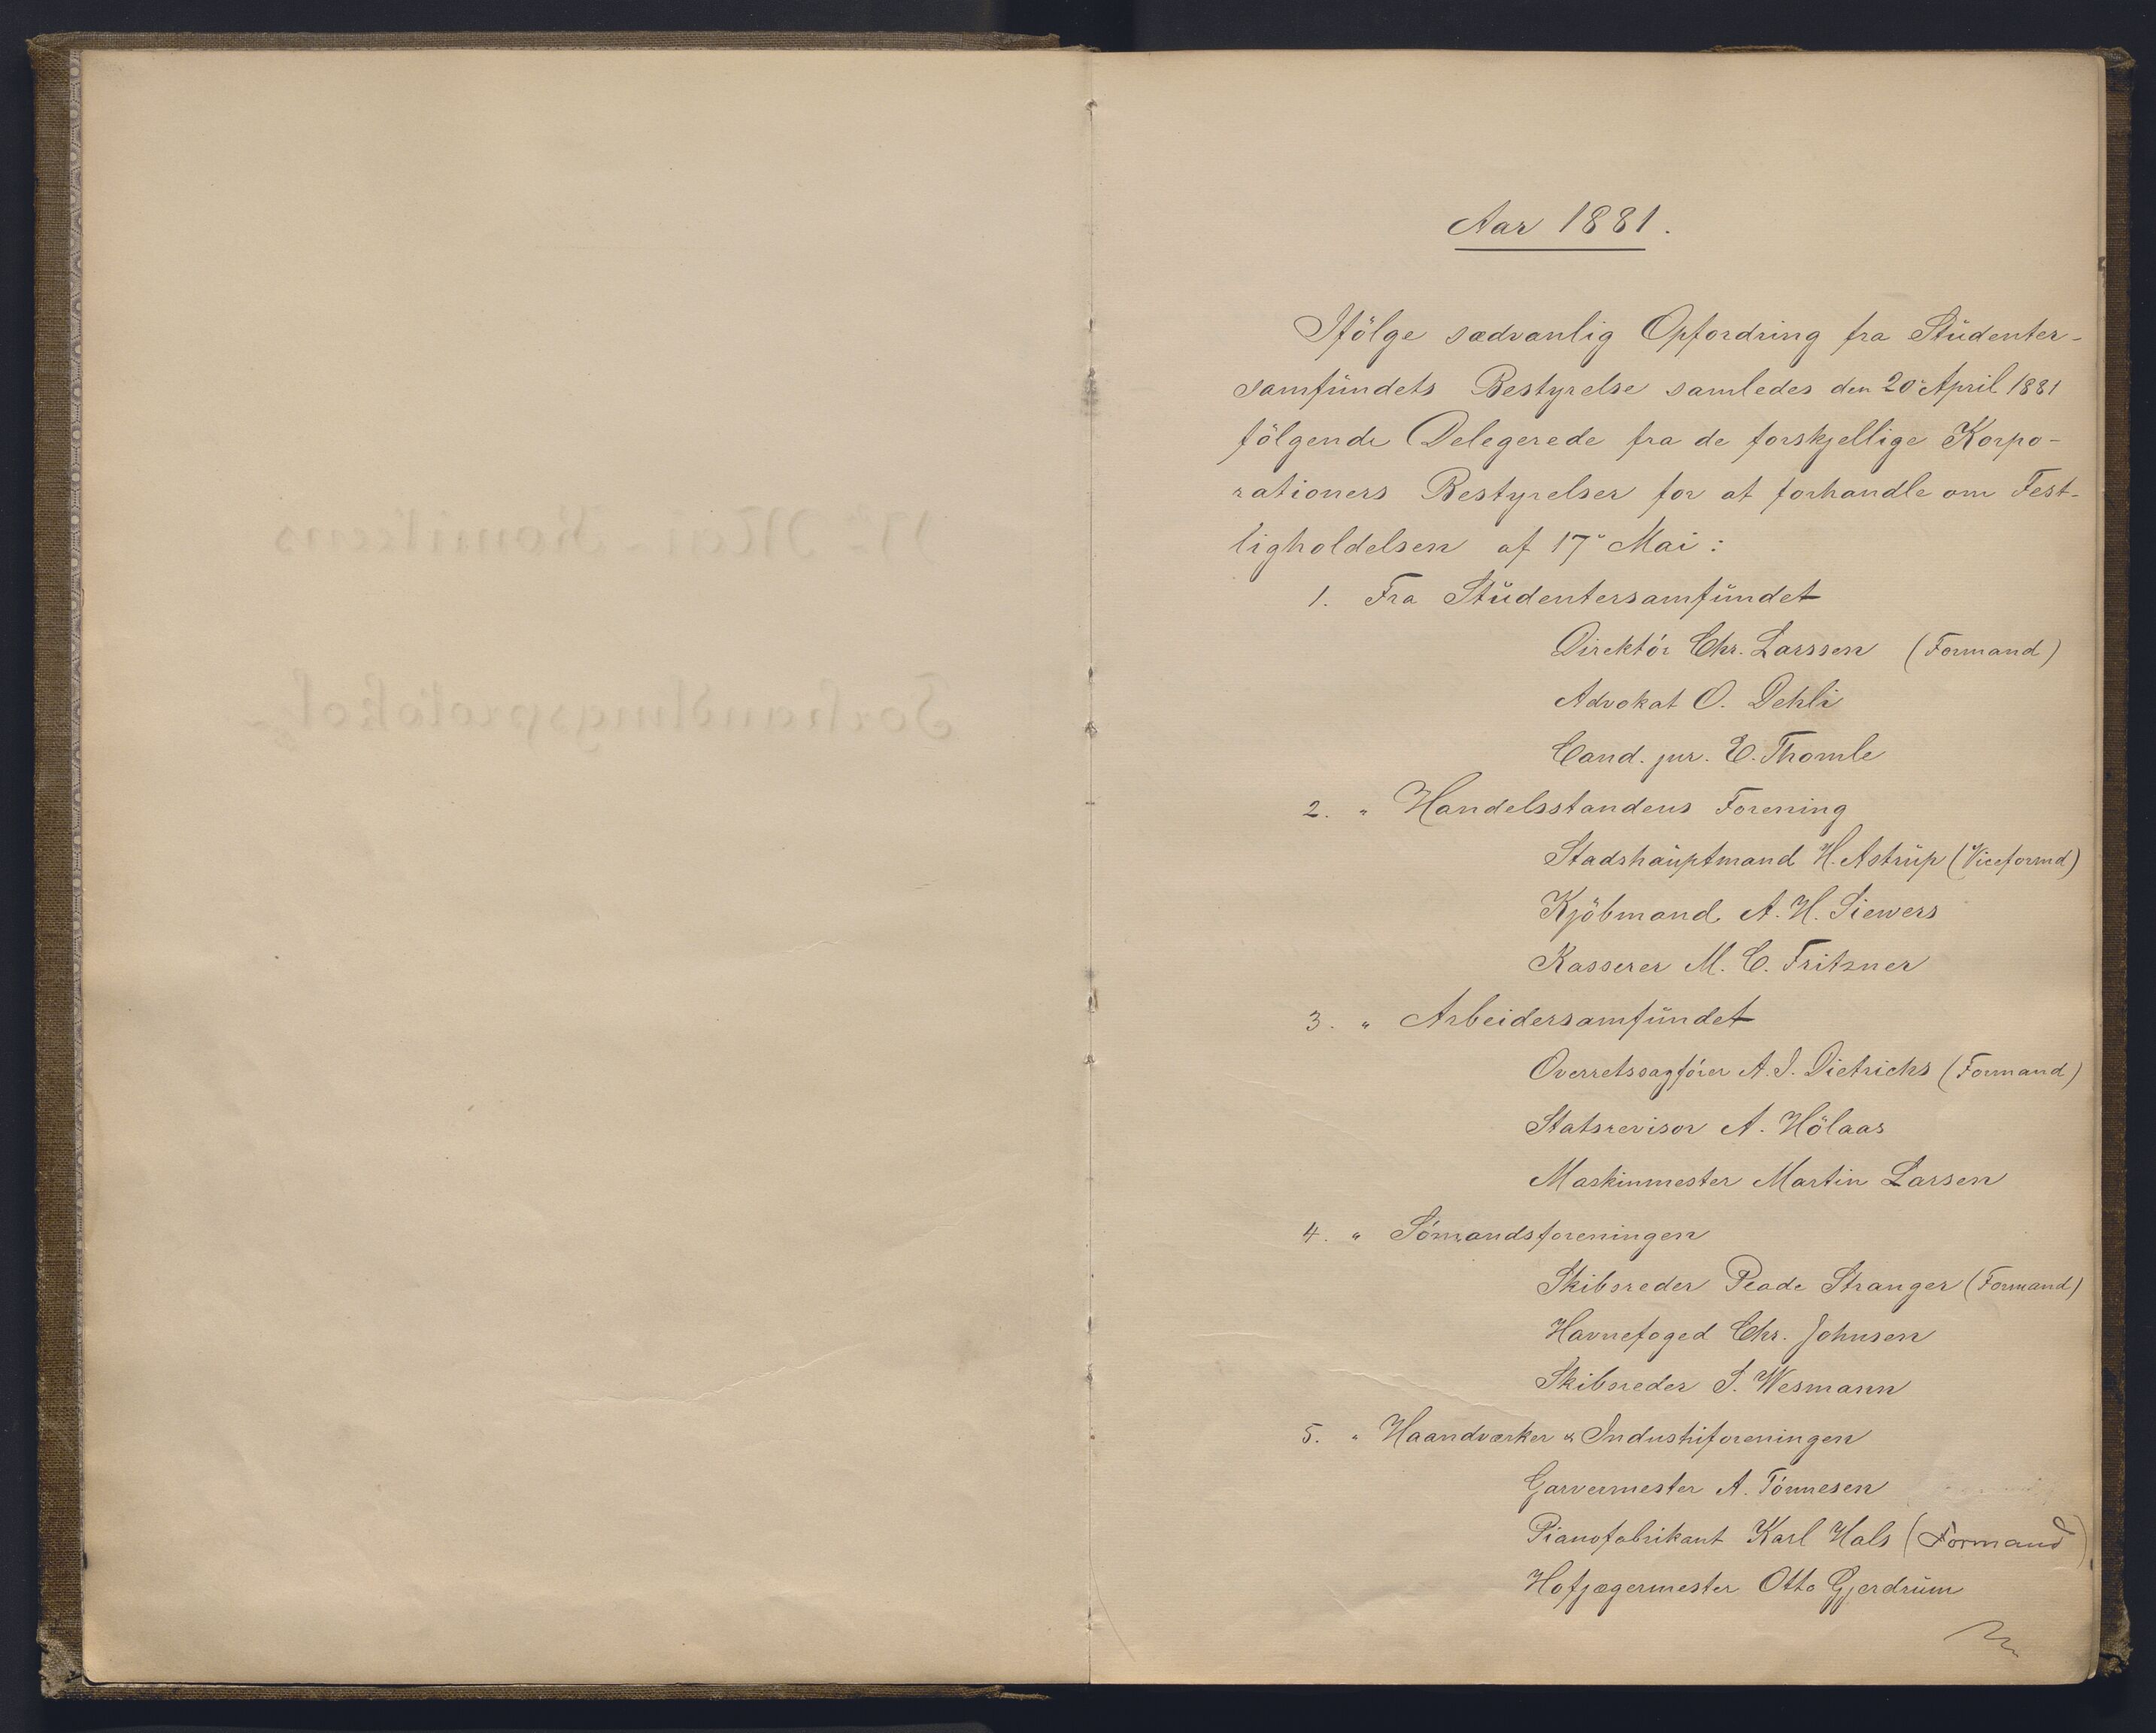 Aar 1881.
Ifölge sædvanlig Opfordring fra Studenter-
samfundets Bestyrelse samledes den 20 April 1881
fölgende Delegerede fra de forskjellige Korpo-
rationers Bestyrelser for at forhandle om Fest-
ligholdelsen af 17 Mai:
1. Fra Studentersamfundet
Direktör Chr. Larssen (Formand)
Advokat O. Dehli
Cand. jur. E. Thomle
2. " Handelsstandens Forening
Stadshauptmand H. Astrup (Viceformd)
Kjöbmand A. H. Siewers
Kasserer M. C. Fritzner
3. " Arbeidersamfundet
Overretssagförer A. I. Dietrichs (Formand)
Statsrevisor A. Hölaas
Maskinmester Martin Larsen
4. " Sömandsforeningen
Skibsreder Peade Stranger (Formand)
Havnefoged Chr. Johnsen
Skibsreder I. Wesmann
5. " Haandværker & Industriforeningen
Garvermester A. Tönnesen
Pianofabrikant Karl Hals (Formand)
Hofjægermester Otto Gjerdrum